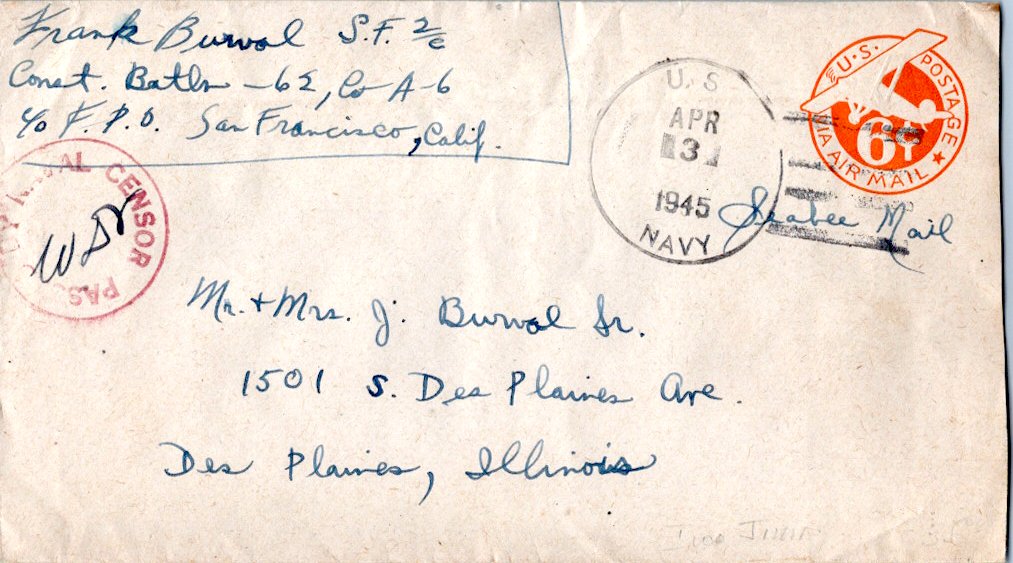 Frank Burval S.F. 2/c
Const. Batln - 62, Co A-6
c/o F.P.O. San Francisco, Calif.
U.S. POSTAGE
VIA AIR MAIL
6¢
U.S.
APR
3
1945
NAVY
Seabee Mail
NAVAL CENSOR
PASSED BY
Mr. + Mrs. J. Burval Sr.
1501 S. Des Plaines Ave.
Des Plaines, Illinois
Iwo Jima